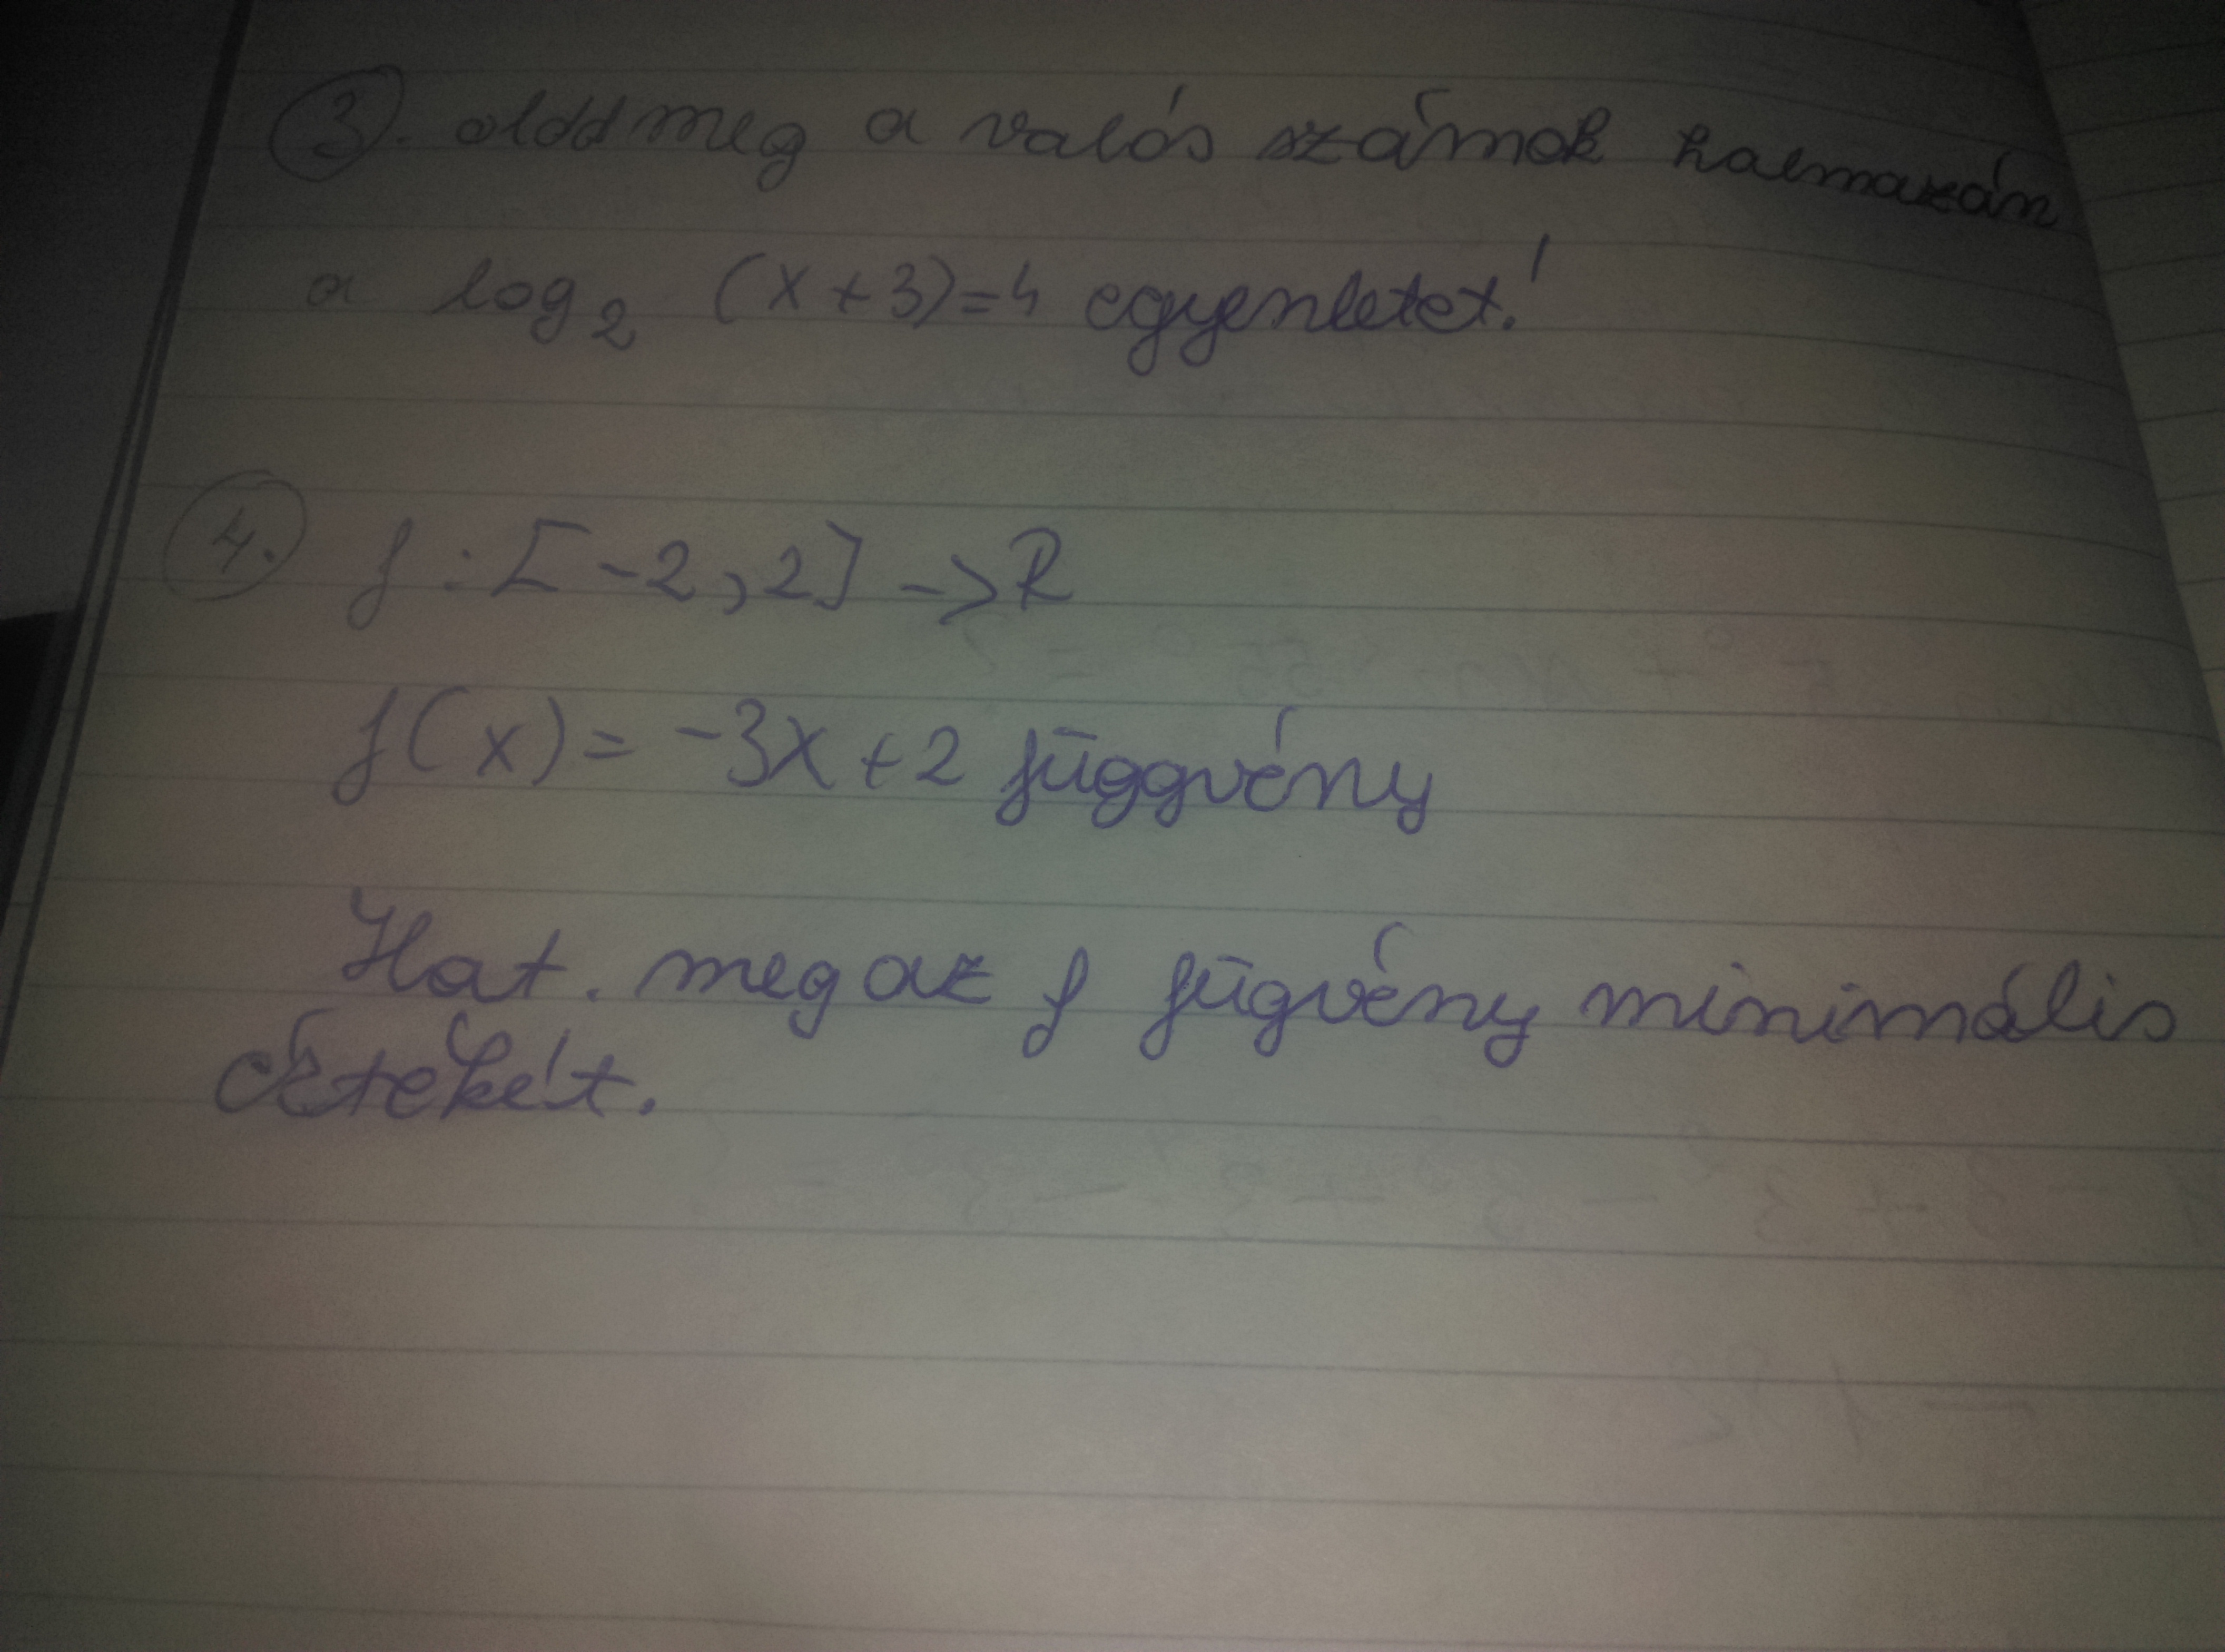 3. oldd meg a valós számok halmazán
a log₂ (x+3)=4 egyenletet!
4. f: [-2,2] -> R
f(x) = -3x+2 függvény
Hat. meg az f fügvény minimális
értékét.